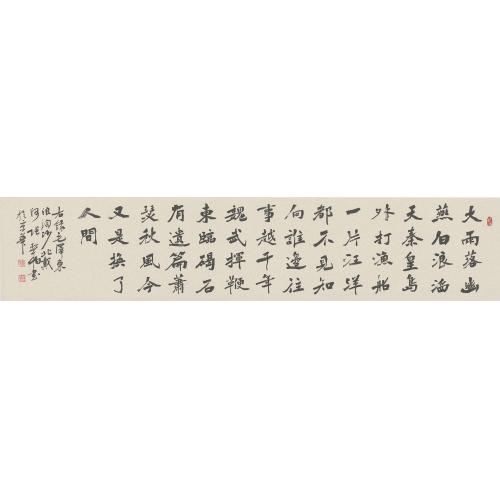 大雨落幽
燕白浪滔
天秦皇島
外打漁船
一片汪洋
都不見知
向誰邊往
事越千年
魏武揮鞭
東臨碣石
有遺篇蕭
瑟秋風今
又是換了
人間
右錄毛澤東
浪淘沙北戴
河張書
於京華